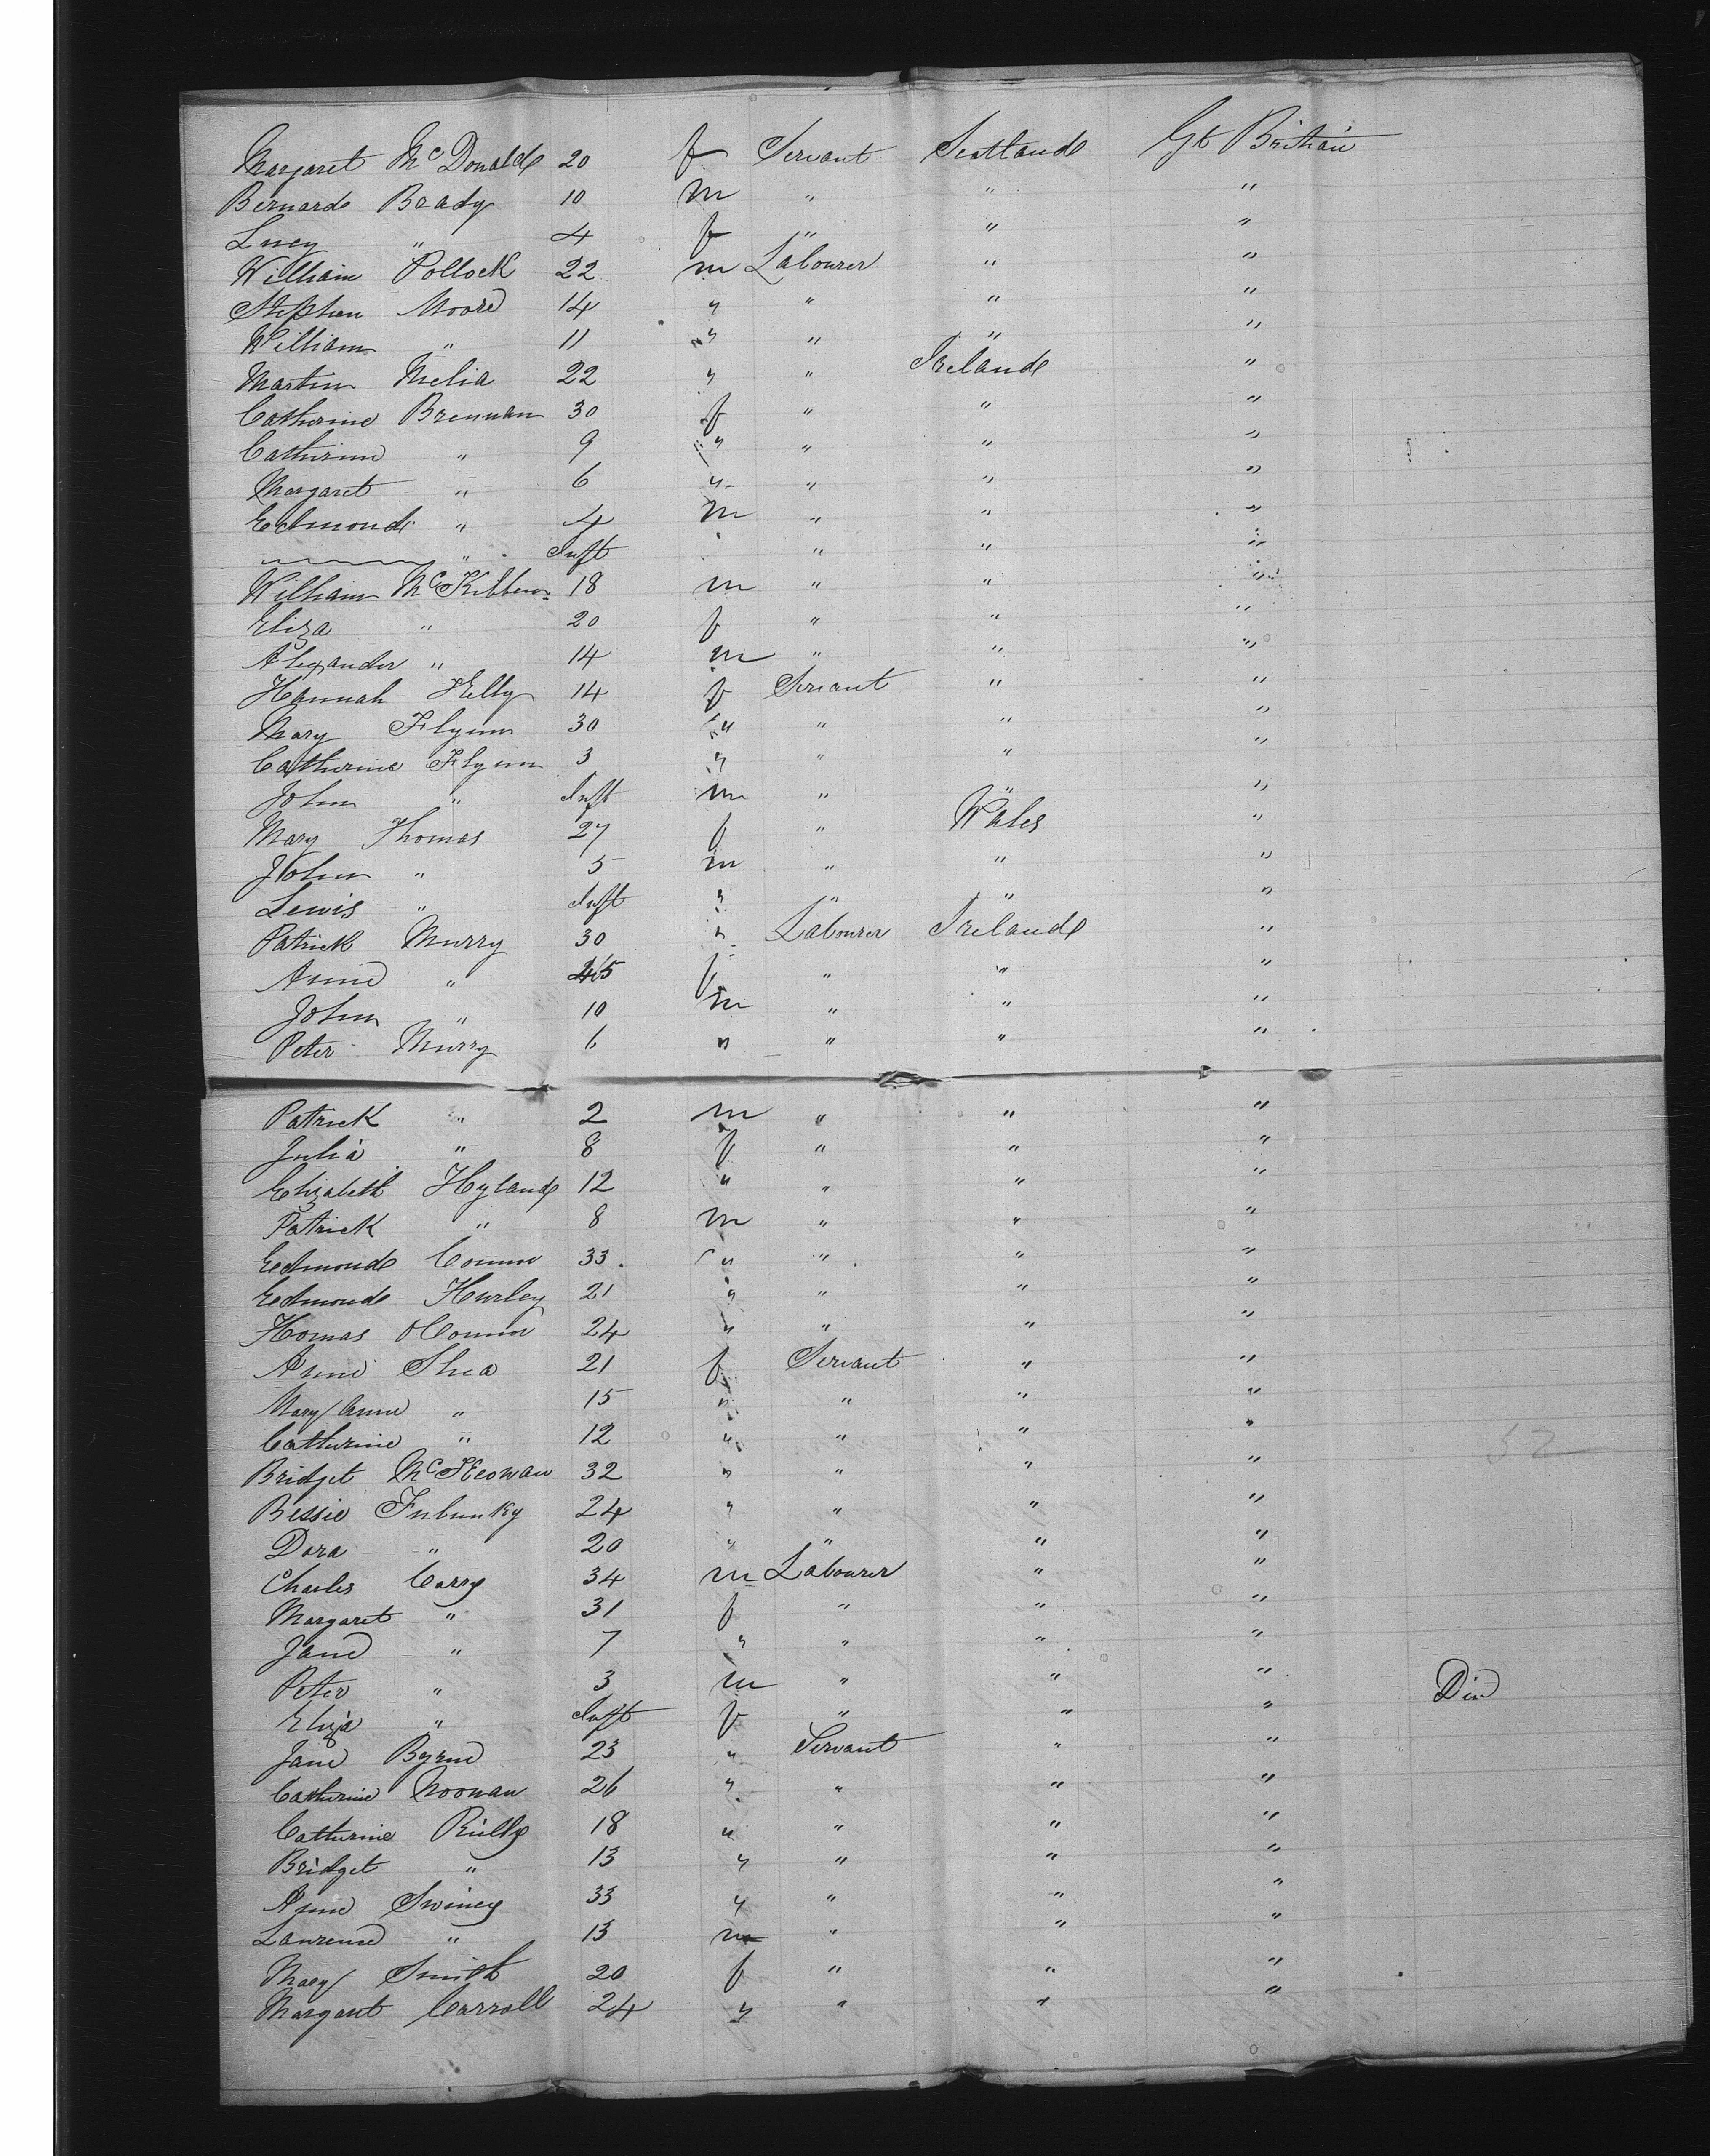 Margaret McDonald 20 f Servant Scotland Gt Britain
Bernard Brady 10 m " " "
Lucy " 4 f " " "
William Pollock 22 m Labourer " "
Stephen Moore 14 " " " "
William " 11 " " " "
Martin Melia 22 " " Ireland "
Catherine Brennan 30 f " " "
Catherine " 9 " " " "
Margaret " 6 " " " "
Edmond " 4 m " " "
" Inft " " "
William McKibben 18 m " " "
Eliza " 20 f " " "
Alexander " 14 m " " "
Hannah Kelly 14 f Servant " "
Mary Flynn 30 " " " "
Catherine Flynn 3 " " " "
John " Inft m " " "
Mary Thomas 27 f " Wales "
John " 5 m " " "
Lewis " Inft " " " "
Patrick Murry 30 " Labourer Ireland "
Anne " f " " "
John " 10 m " " "
Peter Murry 6 " " " "
Patrick " 2 m " " "
Julia " 8 f " " "
Elizabeth Hyland 12 " " " "
Patrick " 8 m " " "
Edmond Connor 33 " " " "
Edmond Hurley 21 " " " "
Thomas OConnor 24 " " " "
Anne Shea 21 f Servant " "
Mary Anne " 15 " " " "
Catherine " 12 " " " "
Bridget McKeowan 32 " " " "
Bessie 24 " " " "
Dora " 20 " " " "
Charles Carry 34 m Labourer " "
Margaret " 31 f " " "
Jane " 7 " " " "
Peter " 3 m " " "
Eliza " Inft f " " " Die
Jane Byrne 23 " Servant " "
Catherine Noonan 26 " " " "
Catherine Rielly 18 " " " "
Bridget " 13 " " " "
Anne Swiney 33 " " " "
Laurence " 13 m " " "
Mary Smith 20 f " " "
Margaret Carroll 24 " " " "